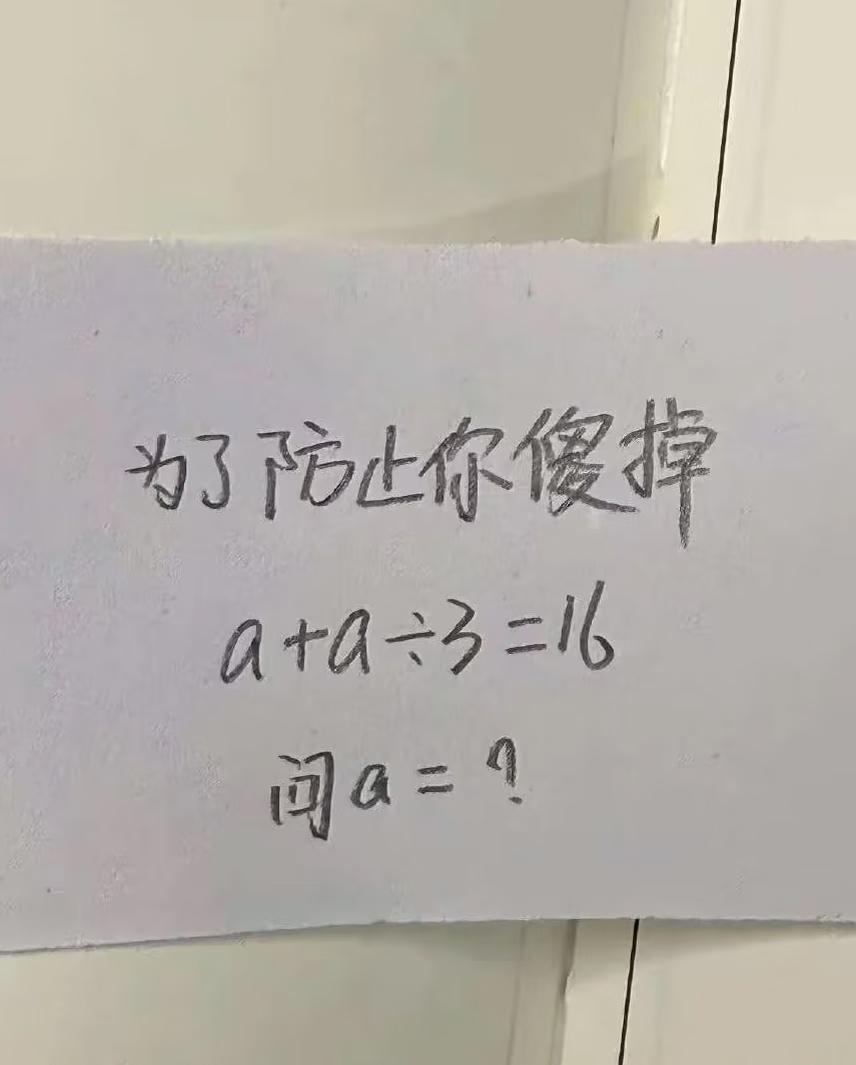 为了防止你傻掉
a+a÷3=16
问a=?